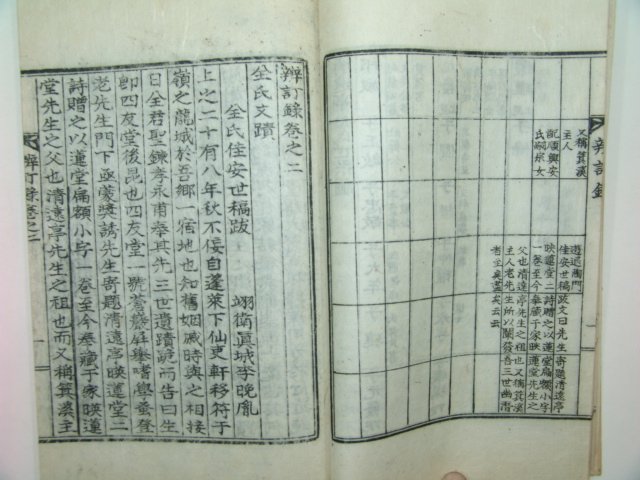 辨訂錄
一
又稱箕溪
主人
配順興安
氏嗣宗女
遊退陶門
佳安世稿跋文曰先生寄題清遠亭
映蓮堂二詩贈之以蓮堂扁額小字
一卷至今奉藏于家映蓮堂先生之
父也清遠亭先生之祖也又稱箕溪
主人老先生所以闡發吾三世幽潛
者至矣盡矣云云
辨訂錄卷之二
全氏文蹟
全氏佳安世稿跋
翊衛眞城李晚胤
上之二十有八年秋不佞自蓬萊下仙更軒移符于
嶺之龍城於吾鄉一宿地也知舊姻戚時與之相接
日全君聖鍊孝永甫奉其先三世遺蹟謁而告曰生
卽四友堂後昆也四友堂一號菴巖庭嗜學蚤登
老先生門下亟蒙奬誘先生寄題清遠亭映蓮堂二
詩贈之以蓮堂扁額小字一卷至今奉藏于家映蓮
堂先生之父也清遠亭先生之祖也而又稱箕溪主
辨訂錄卷之二
一